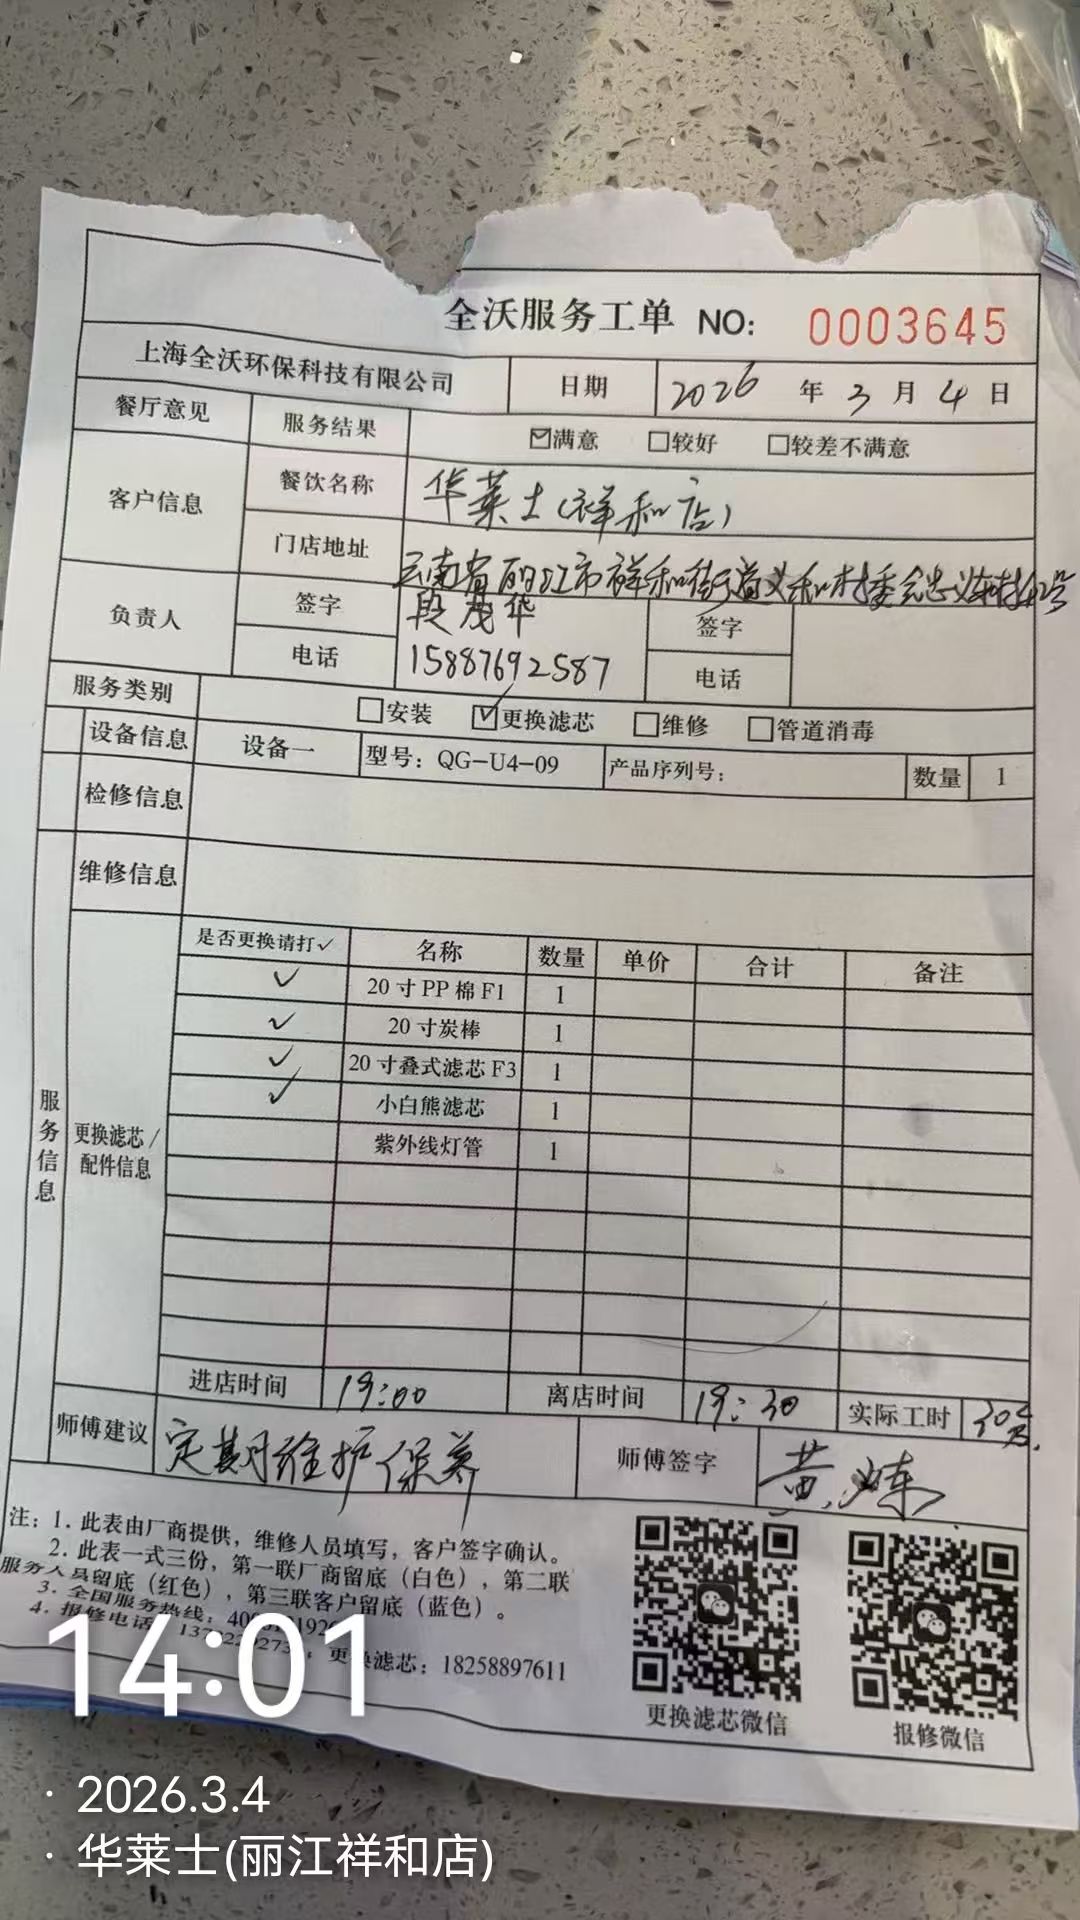 全沃服务工单 NO: 0003645
上海全沃环保科技有限公司 日期 2026 年 3 月 4 日
餐厅意见 服务结果 ☑满意 □较好 □较差不满意
客户信息 餐饮名称 华莱士(祥和店)
门店地址 云南省丽江市祥和街道义和村委会忠义
负责人 签字 段茂华 签字
电话 15887692587 电话
服务类别 □安装 ☑更换滤芯 □维修 □管道消毒
设备信息 设备一 型号: QG-U4-09 产品序列号: 数量 1
检修信息
维修信息
服务信息
更换滤芯/
配件信息
是否更换请打✓ 名称 数量 单价 合计 备注
✓ 20寸PP棉F1 1
✓ 20寸炭棒 1
✓ 20寸叠式滤芯F3 1
✓ 小白熊滤芯 1
紫外线灯管 1
进店时间 离店时间 实际工时
师傅建议 定期维护保养 师傅签字
注: 1. 此表由厂商提供，维修人员填写，客户签字确认。
2. 此表一式三份，第一联厂商留底（白色），第二联
服务人员留底（红色），第三联客户留底（蓝色）。
3. 全国服务热线:
4. 报修电话 更换滤芯: 18258897611
更换滤芯微信 报修微信
14:01
· 2026.3.4
· 华莱士(丽江祥和店)